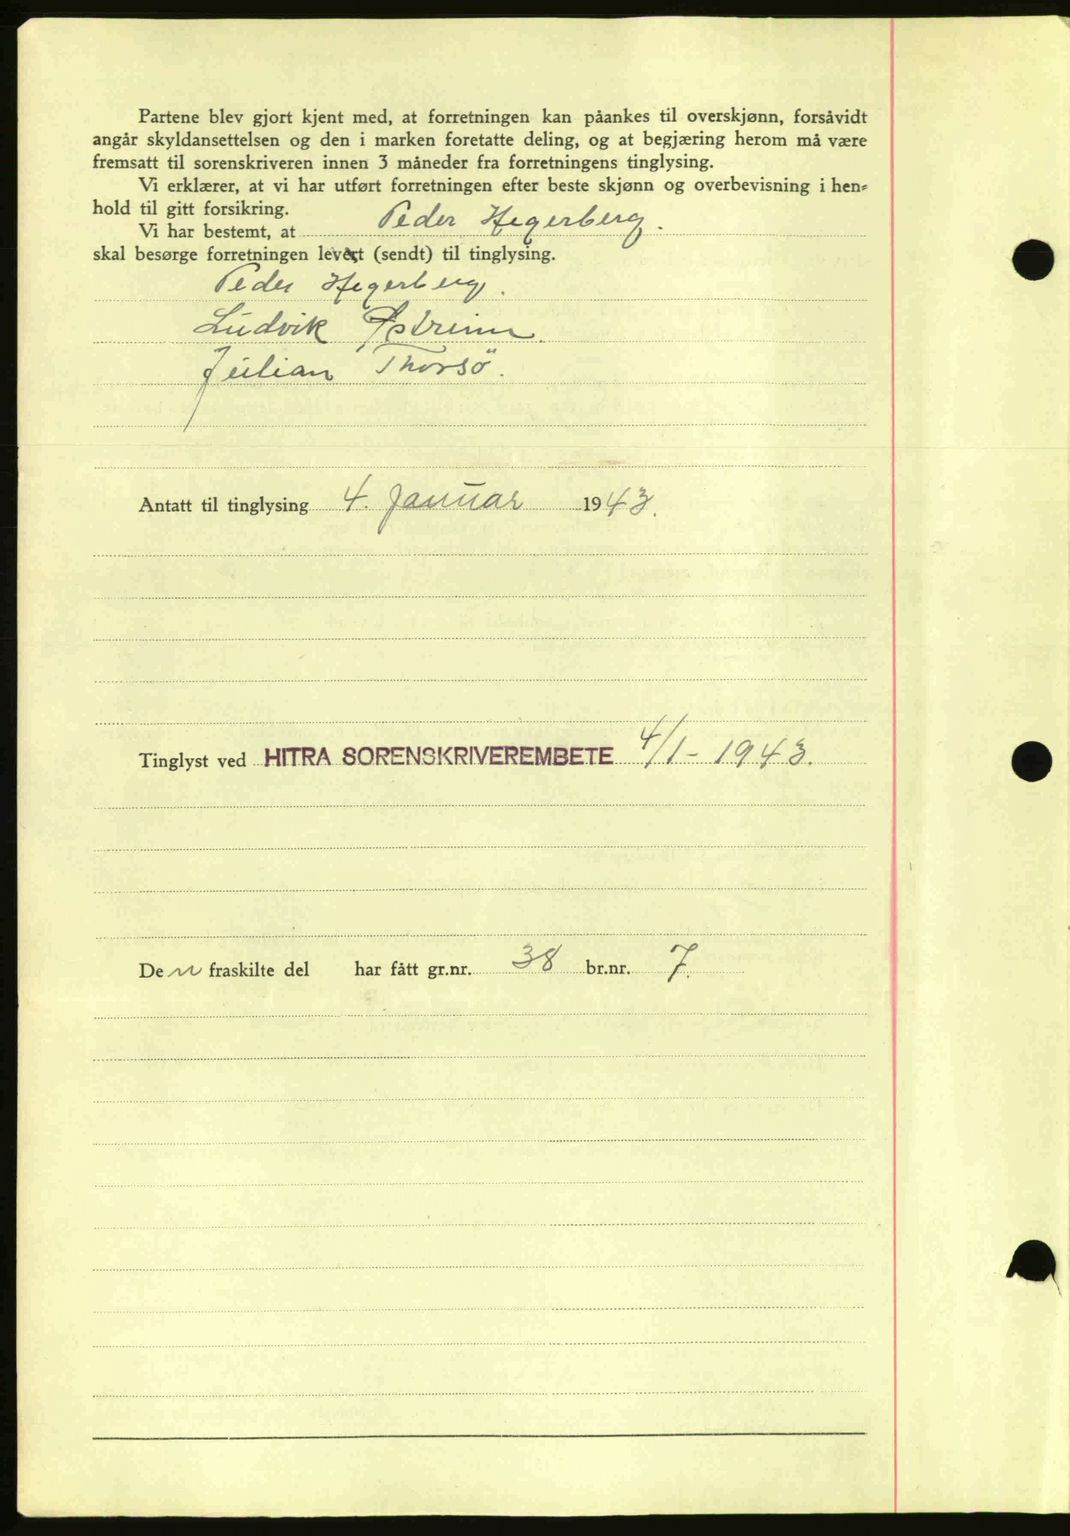 Partene blev gjort kjent med, at forretningen kan påankes til overskjønn, forsåvidt
angår skyldansettelsen og den i marken foretatte deling, og at begjæring herom må være
fremsatt til sorenskriveren innen 3 måneder fra forretningens tinglysing.
Vi erklærer, at vi har utført forretningen efter beste skjønn og overbevisning i hen-
hold til gitt forsikring.
Vi har bestemt, at Peder Hegerberg.
skal besørge forretningen levert (sendt) til tinglysing.
Peder Hegerberg.
Ludvik Østreim.
Julian Thorsö.
Antatt til tinglysing 4. Januar 1943.
Tinglyst ved HITRA SORENSKRIVEREMBETE 4/1-1943.
Den fraskilte del har fått gr.nr. 38 br.nr. 7.